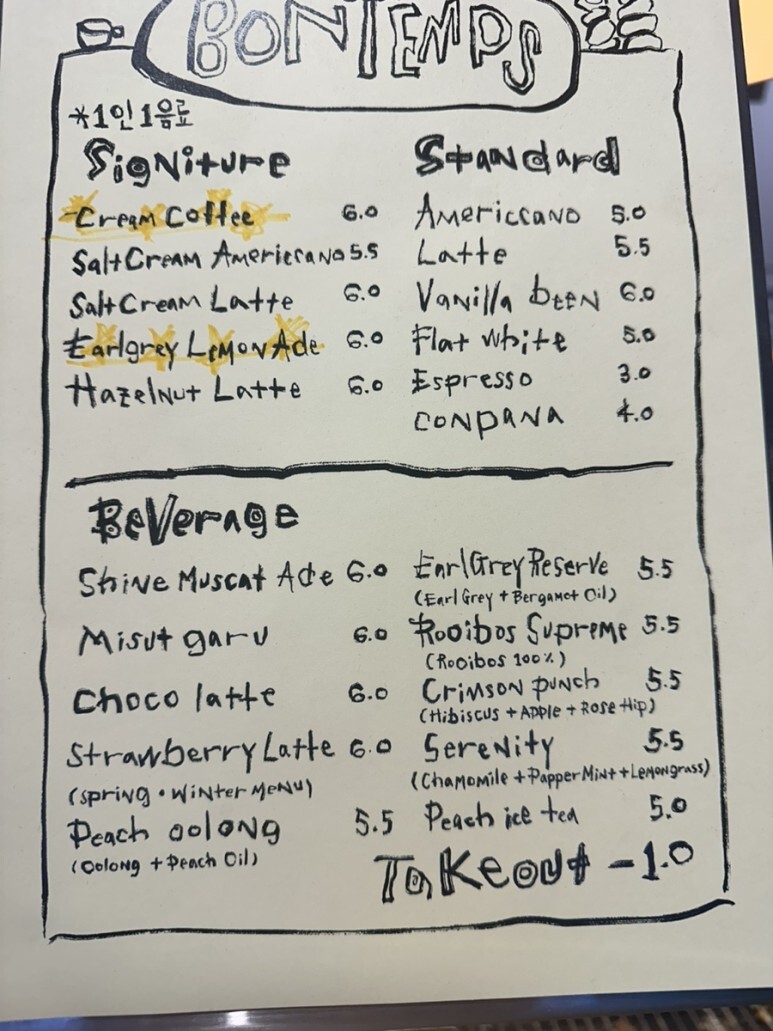 BONTEMPS
*1인 1음료
SigNiture
Cream Coffee 6.0
Salt Cream Americcano 5.5
Salt Cream Latte 6.0
Earlgrey Lemon Ade 6.0
Hazelnut Latte 6.0
Standard
Americcano 5.0
Latte 5.5
Vanilla been 6.0
Flat white 5.0
Espresso 3.0
CONPANA 4.0
Beverage
Shine Muscat Ade 6.0
Misut garu 6.0
Choco latte 6.0
Strawberry Latte 6.0
(Spring • Winter Menu)
Peach oolong 5.5
(Oolong + Peach Oil)
Earl Grey Reserve 5.5
(Earl Grey + Bergamot Oil)
Rooibos Supreme 5.5
(Rooibos 100%)
Crimson punch 5.5
(Hibiscus + Apple + Rose Hip)
Serenity 5.5
(Chamomile + Papper Mint + Lemongrass)
Peach ice tea 5.0
Takeout -1.0